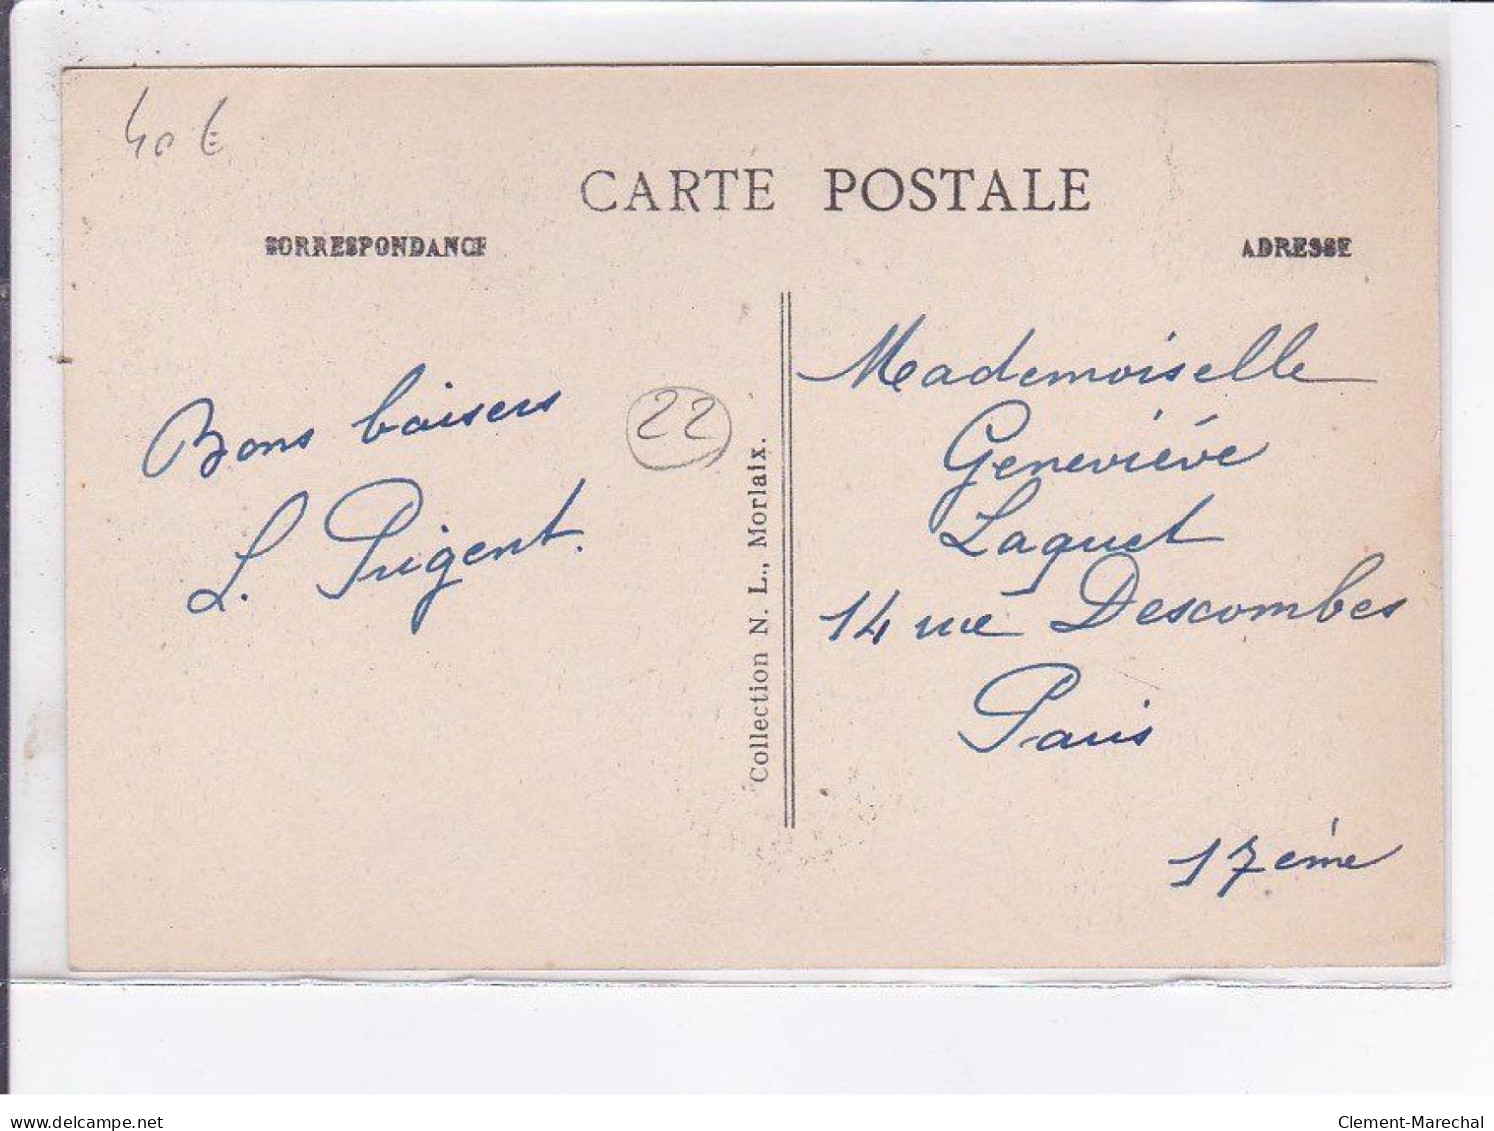 40 €
CARTE POSTALE
CORRESPONDANCE
ADRESSE
Bons baisers
L. Prigent.
22
Collection N. L., Morlaix.
Mademoiselle
Geneviéve
Laquet
14 rue Descombes
Paris
17éme
delcampe.net
Clement-Marechal